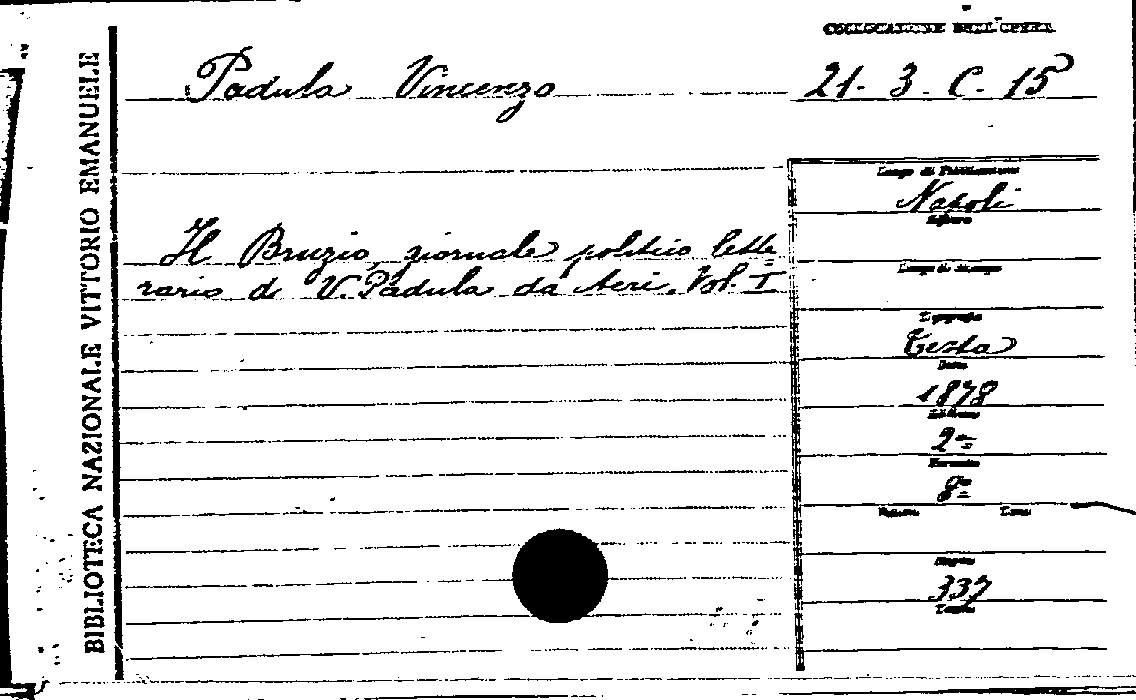 BIBLIOTECA NAZIONALE VITTORIO EMANUELE
COLLOCAZIONE DELL'OPERA
Padula Vincenzo
21. 3. C. 15
Luogo di Pubblicazione
Napoli
Editore
Il Bruzio, giornale politico lette
rario di V. Padula da Acri. Vol. I
Luogo di stampa
Tipografia
Testa
Data
1878
Edizione
2ª
Formato
8º
Volumi
Pagine
337
Tavole